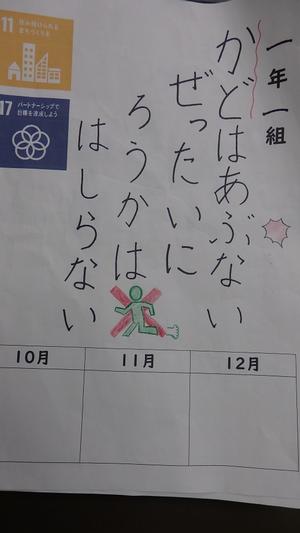 一年一組
かどはあぶない
ぜったいに
ろうかは
はしらない
11 住み続けられる
まちづくりを
17 パートナーシップで
目標を達成しよう
12月
11月
10月